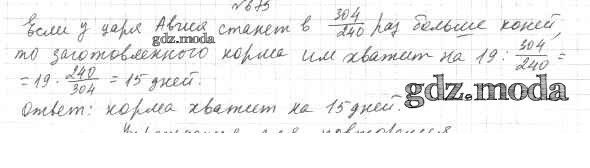 № 675
Если у царя Авгия станет в 304/240 раз больше коней,
gdz.moda
то заготовленного корма им хватит на 19 : 304/240 =
= 19 · 240/304 = 15 дней.
gdz.moda
Ответ: корма хватит на 15 дней.